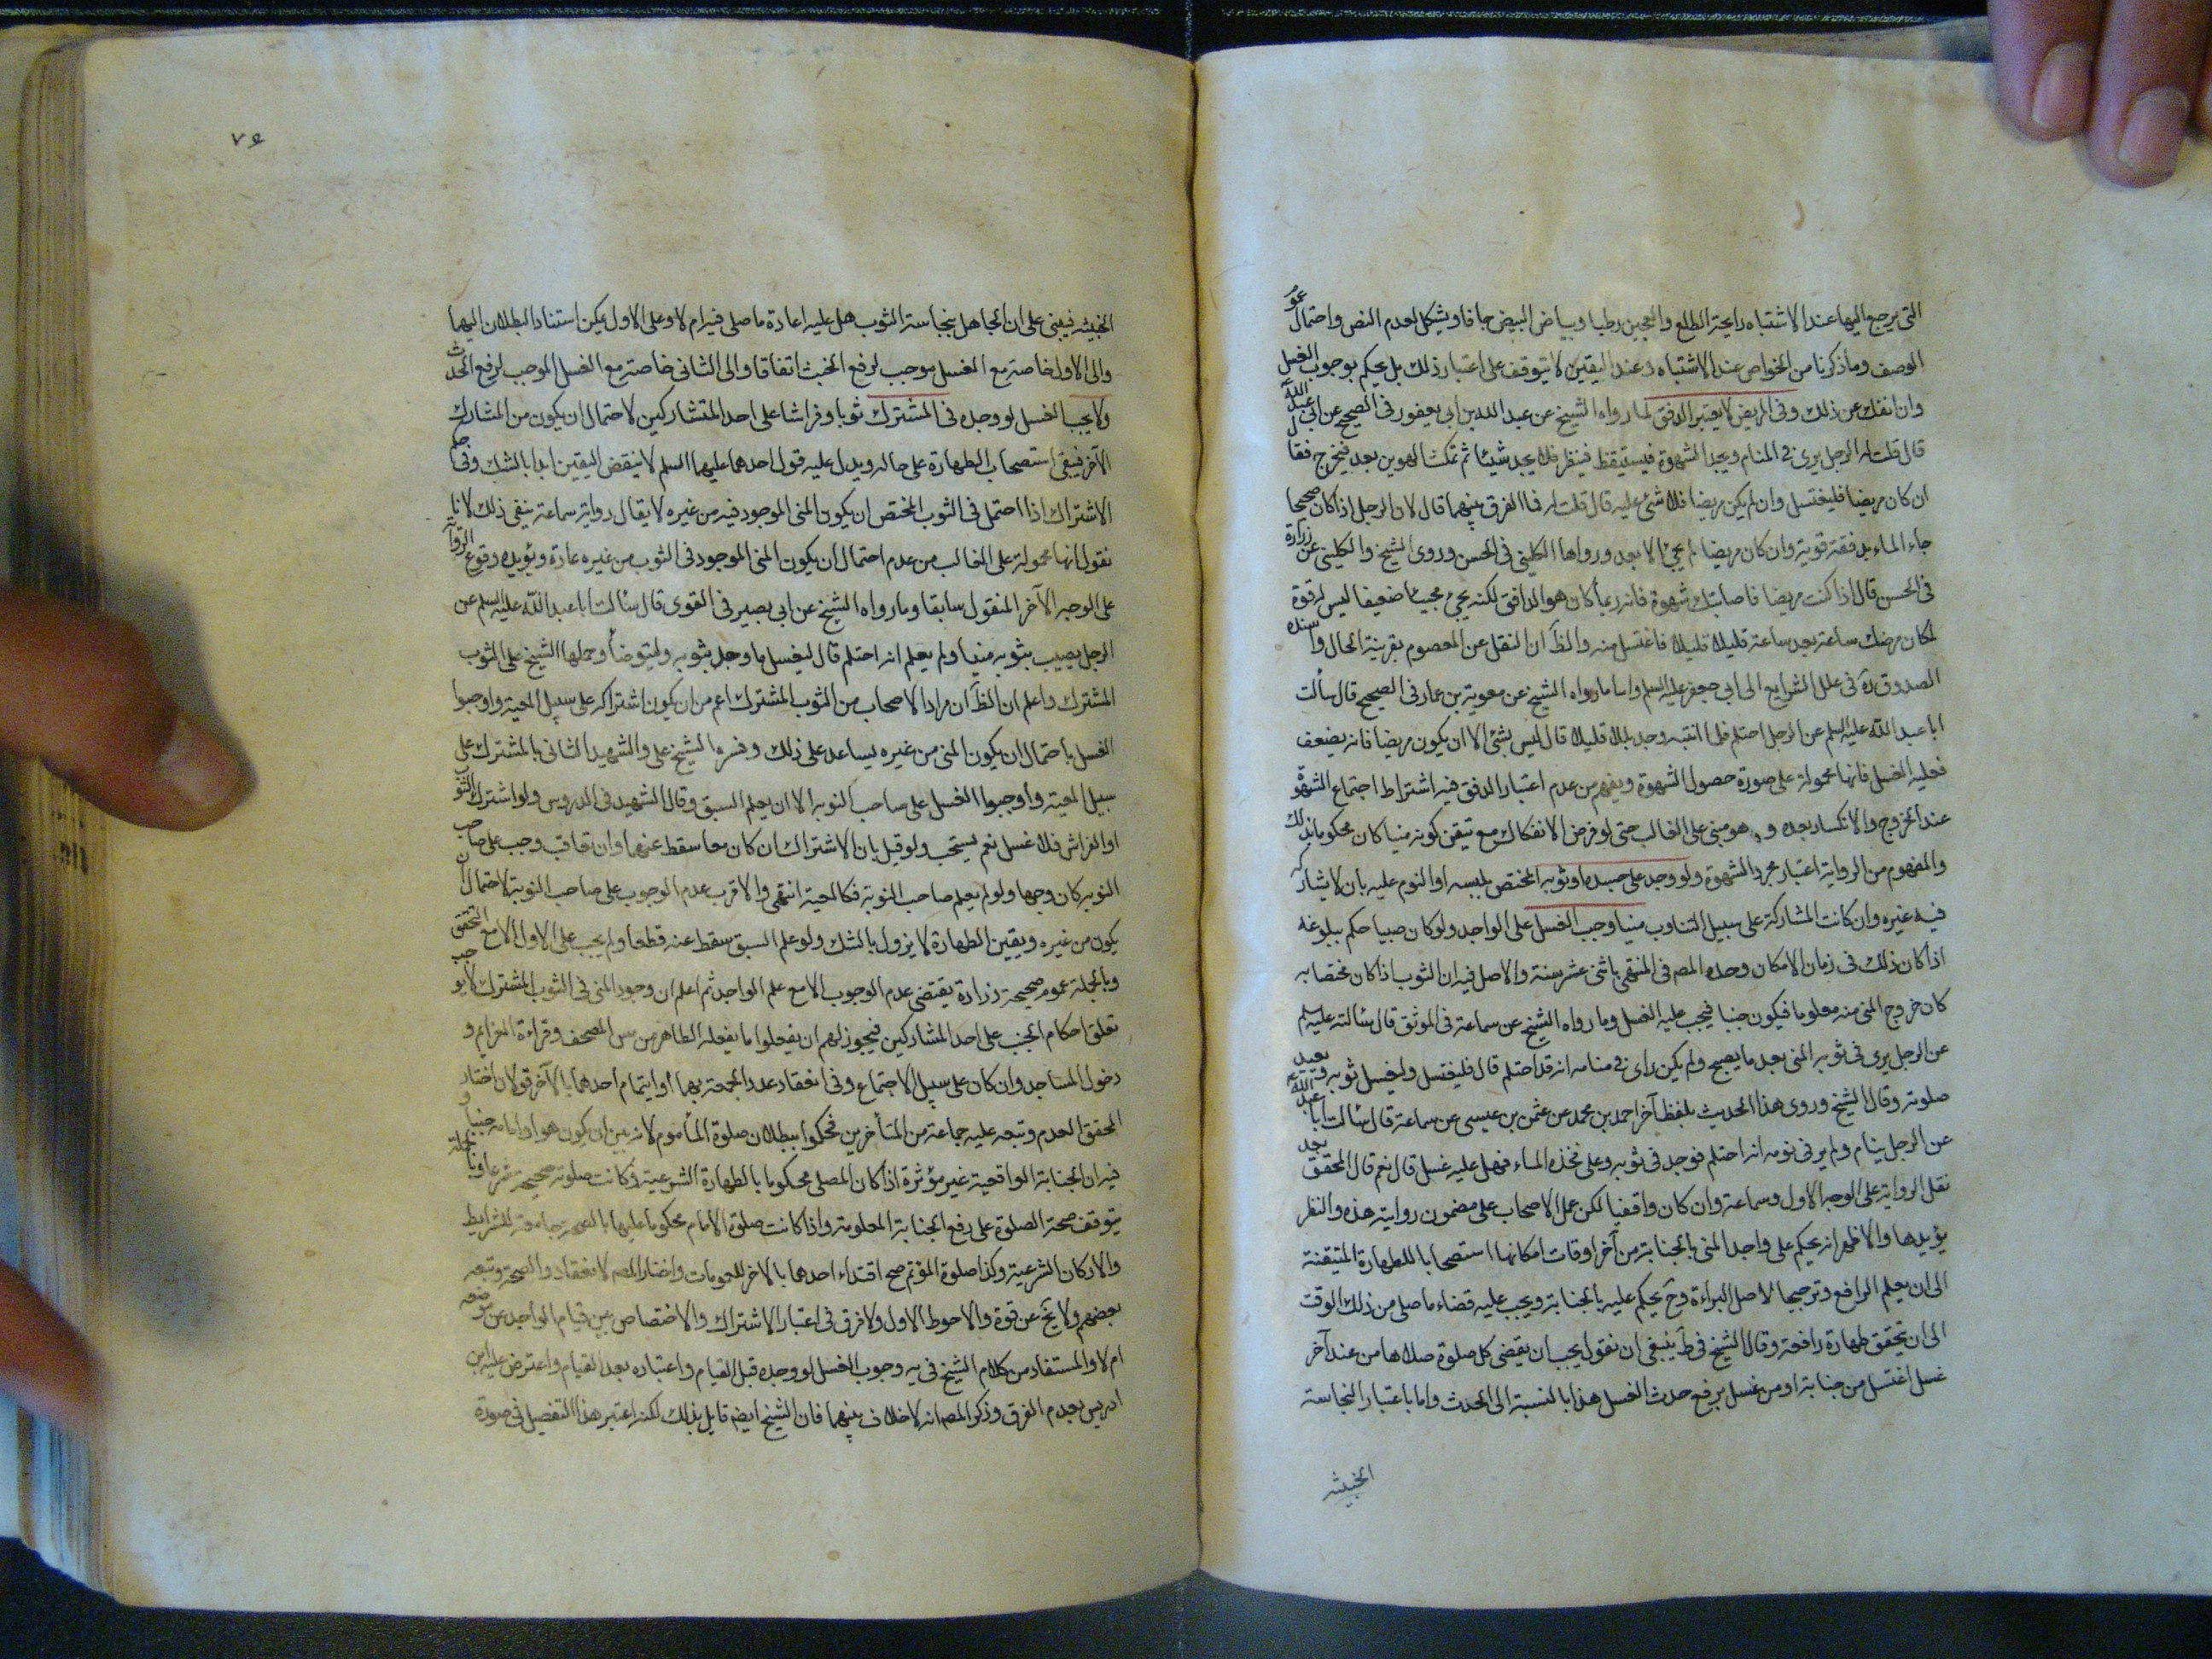 التى يرجع اليها عند الاشتباه رايحة الطلع والعجين رطبا وبياض البيض جافا ويشكل لعدم النص واحتمال عموم
الوصف وما ذكرنا من الخواص عند الاشتباه وعند اليقين لا يتوقف على اعتبار ذلك بل يحكم بوجوب الغسل
وان انفك عن ذلك وفى المريض لا يعتبر الدفق لما رواه الشيخ عن عبد الله بن ابى يعفور فى الصحيح عن ابى عبد الله
قال قلت له الرجل يرى فى المنام ويجد الشهوة فيستيقظ فينظر فلا يجد شيئا ثم يمكث الهوين بعد فيخرج فقال
ان كان مريضا فليغتسل وان لم يكن مريضا فلا شئ عليه قال قلت له فما الفرق بينهما قال لان الرجل اذا كان صحيحا
جاء الماء بدفقة قوية وان كان مريضا لم يجئ الا بعد ورواها الكلينى فى الحسن وروى الشيخ والكلينى عن زرارة
فى الحسن قال اذا كنت مريضا فاصابتك شهوة فانه ربما كان هو الدافق لكنه يجئ مجيئا ضعيفا ليس له قوة
لمكان مرضك ساعة بعد ساعة قليلا قليلا فاغتسل منه والظ ان النقل عن المعصوم بقرينة الحال واسنده
الصدوق ره فى علل الشرايع الى ابى جعفر عليه السلم واما ما رواه الشيخ عن معوية بن عمار فى الصحيح قال سألت
ابا عبد الله عليه السلم عن الرجل احتلم فلما انتبه وجد بللا قليلا قال ليس بشئ الا ان يكون مريضا فانه يضعف
فعليه الغسل فانها محمولة على صورة حصول الشهوة ويفهم من عدم اعتبار الدفق فيه اشتراط اجتماع الشهوة
عند الخروج والانكسار بعده و هو مبنى على الغالب حتى لو فرض الانفكاك مع تيقن كونه منيا كان محكوما بذلك
والمفهوم من الرواية اعتبار مجرد الشهوة ولو وجد على جسده او ثوبه المختص بلبسه او النوم عليه بان لا يشاركه
فيه غيره وان كانت المشاركة على سبيل التناوب منيا وجب الغسل على الواجد ولو كان صبيا حكم ببلوغه
اذا كان ذلك فى زمان الامكان وحده المصم فى المنتهى باثنى عشر سنة والاصل فيه ان الثوب اذا كان مختصا به
كان خروج المنى منه معلوما فيكون جنبا فيجب عليه الغسل وما رواه الشيخ عن سماعة فى الموثق قال سئالته عليه السلم
عن الرجل يرى فى ثوبه المنى بعد ما يصبح ولم يكن راى فى منامه انه قد احتلم قال فليغتسل وليغسل ثوبه ويعيد
صلوته وقال الشيخ وروى هذا الحديث بلفظ آخر احمد بن محمد عن عثمن بن عيسى عن سماعة قال سئالت ابا عبد الله
عن الرجل ينام ولم ير فى نومه انه احتلم فوجد فى ثوبه وعلى فخذه الماء فهل عليه غسل قال نعم قال المحقق بعد
نقل الرواية على الوجه الاول وسماعة وان كان واقفيا لكن عمل الاصحاب على مضمون روايته هذه والنظر
يؤيدها والاظهر انه يحكم على واجد المنى بالجنابة من آخر اوقات امكانها استصحابا للطهارة المتيقنة
الى ان يعلم الرافع وترجيحا لاصل البراءة وح يحكم عليه بالجنابة ويجب عليه قضاء ما صلى من ذلك الوقت
الى ان تتحقق طهارة رافعة وقال الشيخ فى ط ينبغى ان نقول يجب ان يقضى كل صلوة صلاها من عند آخر
غسل اغتسل من جنابة او من غسل يرفع حدث الغسل هذا بالنسبة الى الحدث واما باعتبار النجاسة
الخبيثه
٧٤
الخبيثه فيبنى على ان الجاهل بنجاسة الثوب هل عليه اعادة ما صلى فيه ام لا وعلى الاول يمكن استناد البطلان اليهما
والى الاول خاصة مع الغسل موجب لرفع الخبث اتفاقا والى الثانى خاصة مع الغسل الموجب لرفع الحدث
ولا يجب الغسل لو وجده فى المشترك ثوبا وفراشا على احد المتشاركين لاحتمال ان يكون من المشارك
الآخر فيبقى استصحاب الطهارة على حاله ويدل عليه قول احدهما عليهما السلم لا ينقض اليقين ابدا بالشك وفى حكم
الاشتراك اذا احتمل فى الثوب المختص ان يكون المنى الموجود فيه من غيره لا يقال رواية سماعة ينفى ذلك لانا
نقول انها محمولة على الغالب من عدم احتمال ان يكون المنى الموجود فى الثوب من غيره عادة ويؤيده وقوع الرواية
على الوجه الآخر المنقول سابقا وما رواه الشيخ عن ابى بصير فى القوى قال سئالت ابا عبد الله عليه السلم عن
الرجل يصيب بثوبه منيا ولم يعلم انه احتلم قال ليغسل ما وجد بثوبه وليتوضأ وحملها الشيخ على الثوب
المشترك واعلم ان الظ ان مراد الاصحاب من الثوب المشترك اعم من ان يكون اشتراكه على سبيل المعية واوجبوا
الغسل باحتمال ان يكون المنى من غيره يساعد على ذلك وفسره الشيخ على والشهيد الثانى بالمشترك على
سبيل المعية واوجبوا الغسل على صاحب النوبه الا ان يعلم السبق وقال الشهيد فى الدروس ولو اشترك الثوب
او الفراش فلا غسل نعم يستحب ولو قيل بان الاشتراك ان كان معا سقط عنهما وان تعاقب وجب على صاحب
النوبه كان وجها ولو لم يعلم صاحب النوبة فكالمعية انتهى والاقرب عدم الوجوب على صاحب النوبة لاحتمال ان
يكون من غيره ويقين الطهارة لا يزول بالشك ولو علم السبق سقط عنه قطعا ولم يجب على الاول الا مع التحقق
وبالجملة عموم صحيحة زرارة يقتضى عدم الوجوب الا مع علم الواجد ثم اعلم ان وجود المنى فى الثوب المشترك لا يوجب
تعلق احكام الجنب على احد المشاركين فيجوز لهم ان يفعلوا ما يفعله الطاهر من مس المصحف وقراءة العزايم و
دخول المساجد وان كان على سبيل الاجتماع وفى انعقاد عدد الجمعة بهما او ايتمام احدهما بالآخر قولان اختار
المحقق العدم وتبعه عليه جماعة من المتأخرين فحكموا ببطلان صلوة المأموم لانه بين ان يكون هو او امامه جنبا و
فيه ان الجنابة الواقعية غير مؤثرة اذا كان المصلى محكوما بالطهارة الشرعية وكانت صلوته صحيحة شرعا وبالجملة
يتوقف صحة الصلوة على رفع الجنابة المعلومة واذا كانت صلوة الامام محكوما عليها بالصحة جامعة للشرايط
والاركان الشرعية وكذا صلوة المؤتم صح اقتداء احدهما بالاخر للعمومات واختار المصم لانعقاد والصحة وتبعه
بعضهم ولا يخ عن قوة والاحوط الاول ولا فرق فى اعتبار الاشتراك والاختصاص بين قيام الواجد عن موضعه
ام لا والمستفاد من كلام الشيخ فى يه وجوب الغسل لو وجده قبل القيام واعتباره بعد القيام واعترض عليه ابن
ادريس بعدم الفرق وذكر المصم انه لا خلاف بينهما فان الشيخ ايضم قايل بذلك لكنه اعتبر هذا التفصيل فى صورة